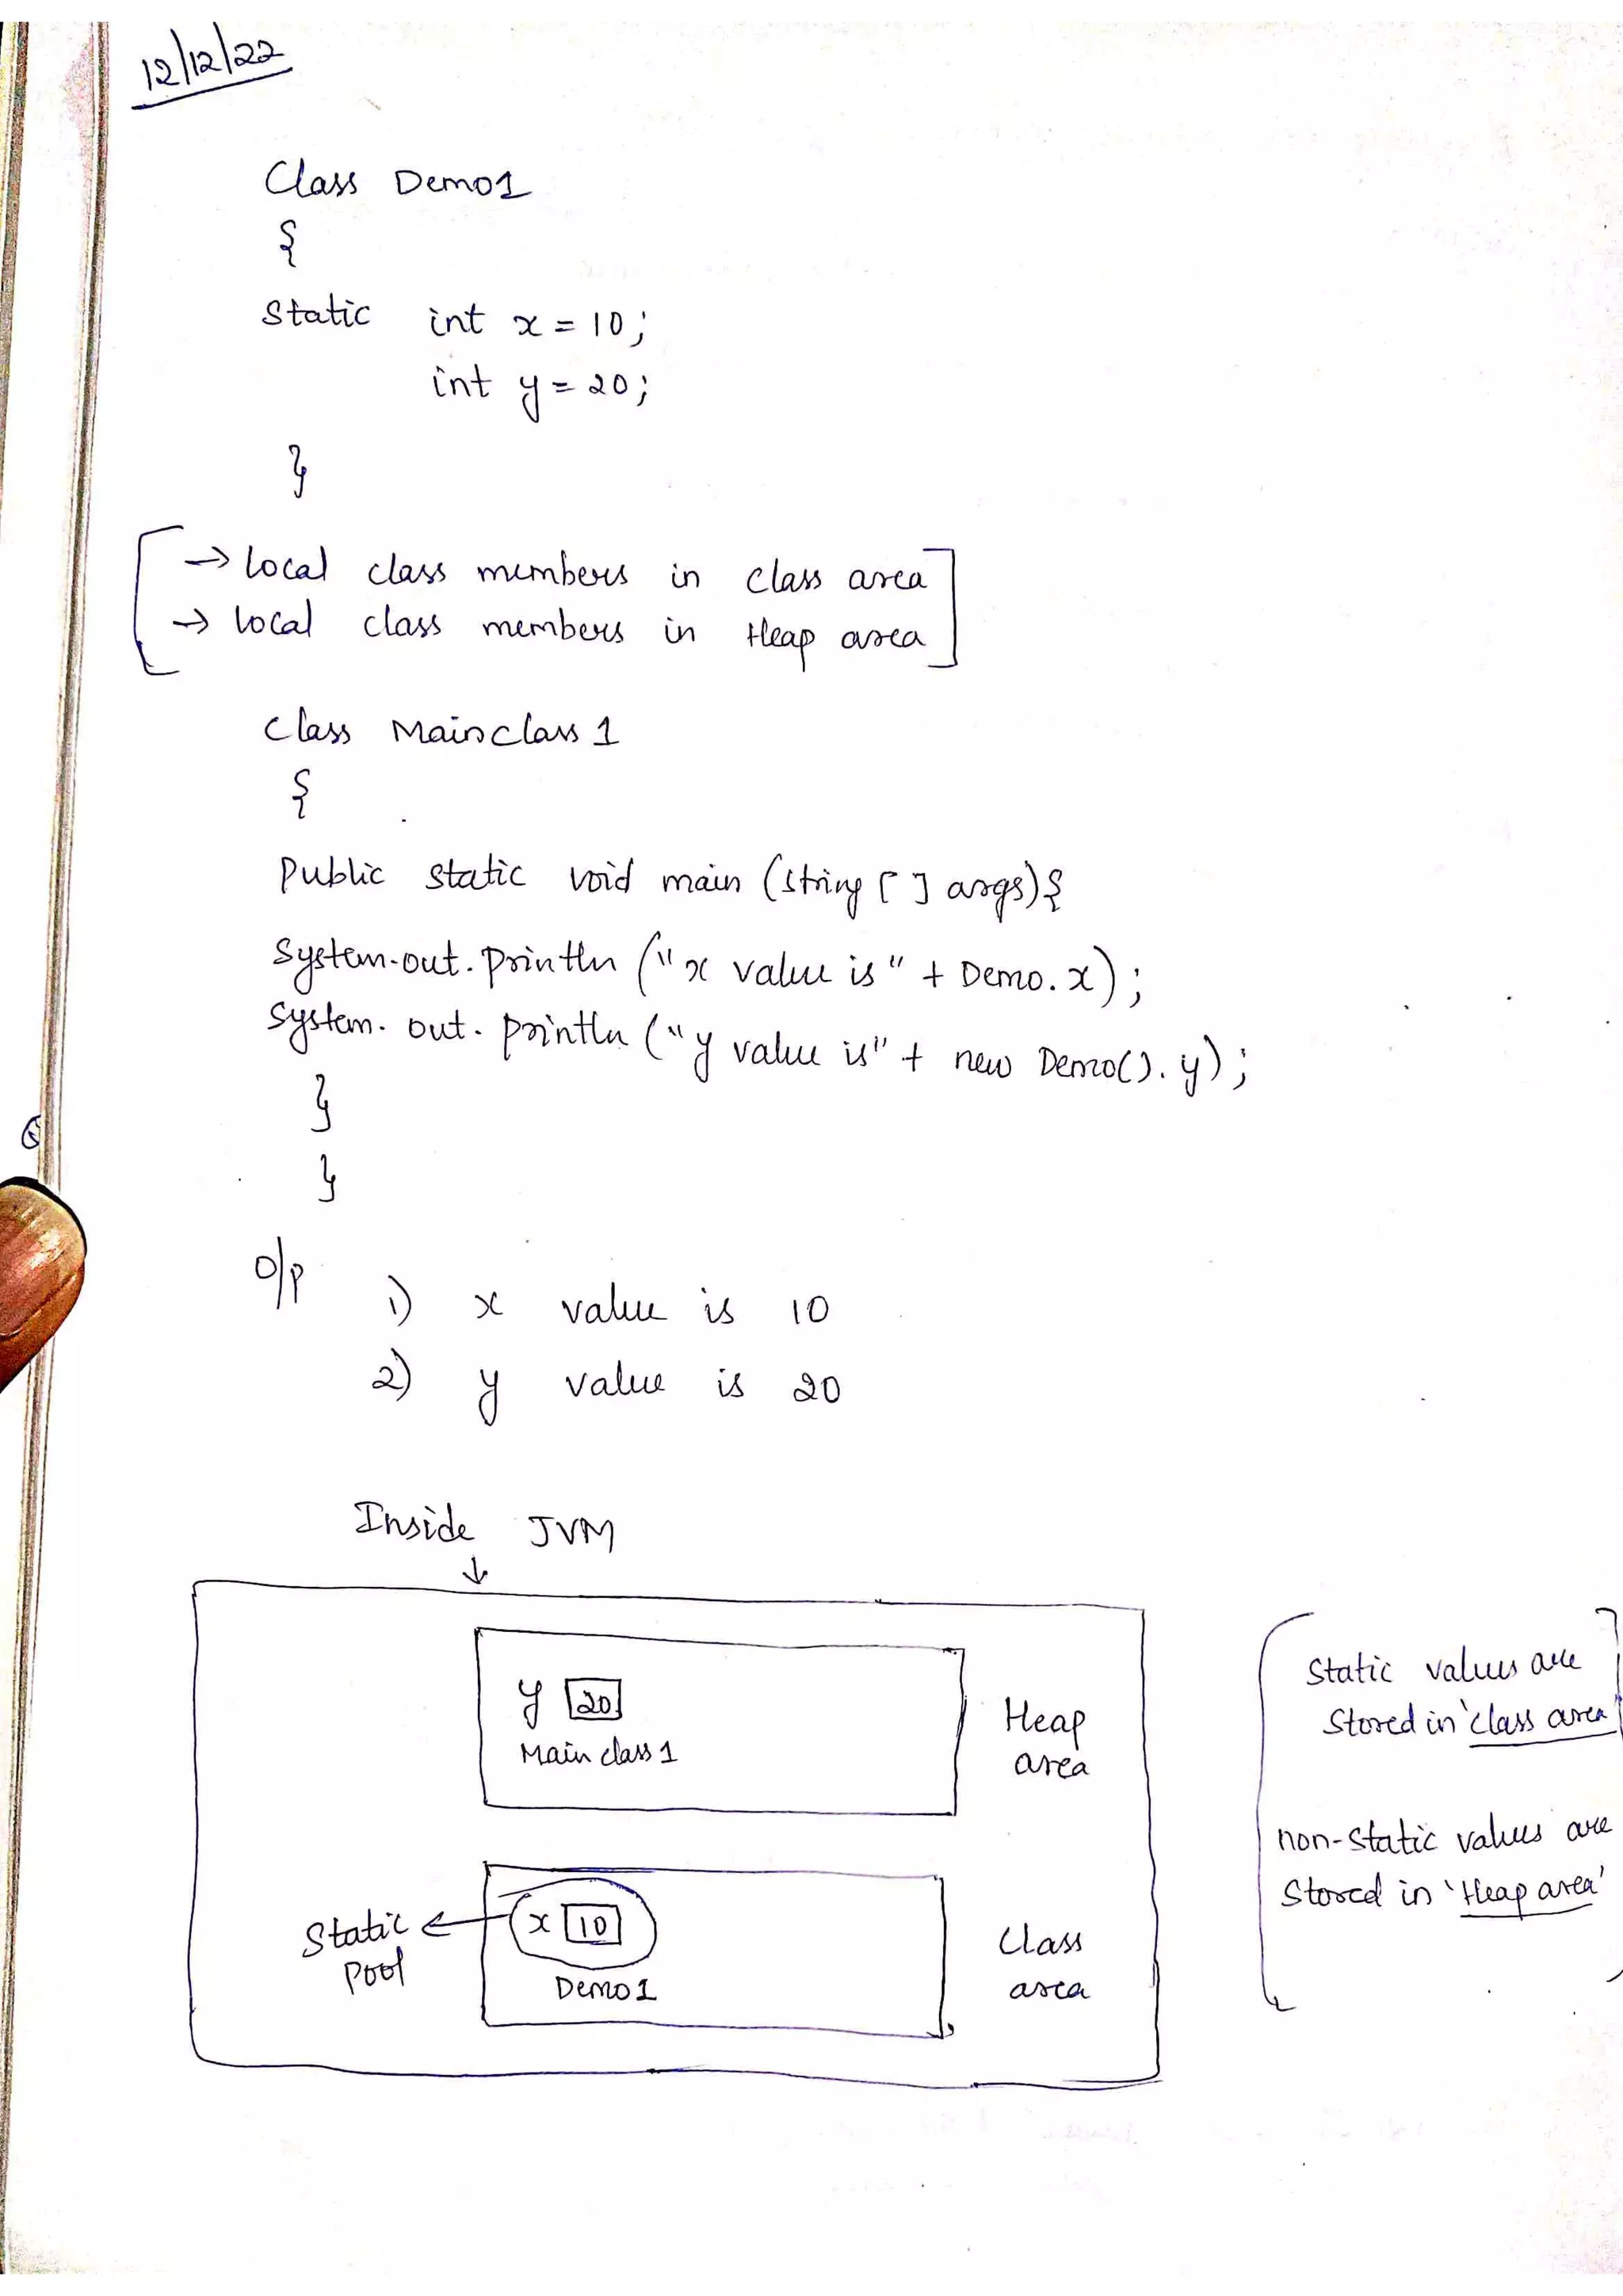 12/12/22
Class Demo1
{
Static int x = 10;
int y = 20;
}
→ local class members in class area
→ local class members in Heap area
Class Mainclass 1
{
Public static void main (string [ ] args){
System.out.println ("x value is" + Demo.x);
System.out.println ("y value is" + new Demo().y);
}
}
o/p
1) x value is 10
2) y value is 20
Inside JVM
↓
y 20
Main class 1
Heap
area
Static values are
Stored in 'class area'
non-static values are
Stored in 'Heap area'
Static
Pool
x 10
Demo 1
Class
area